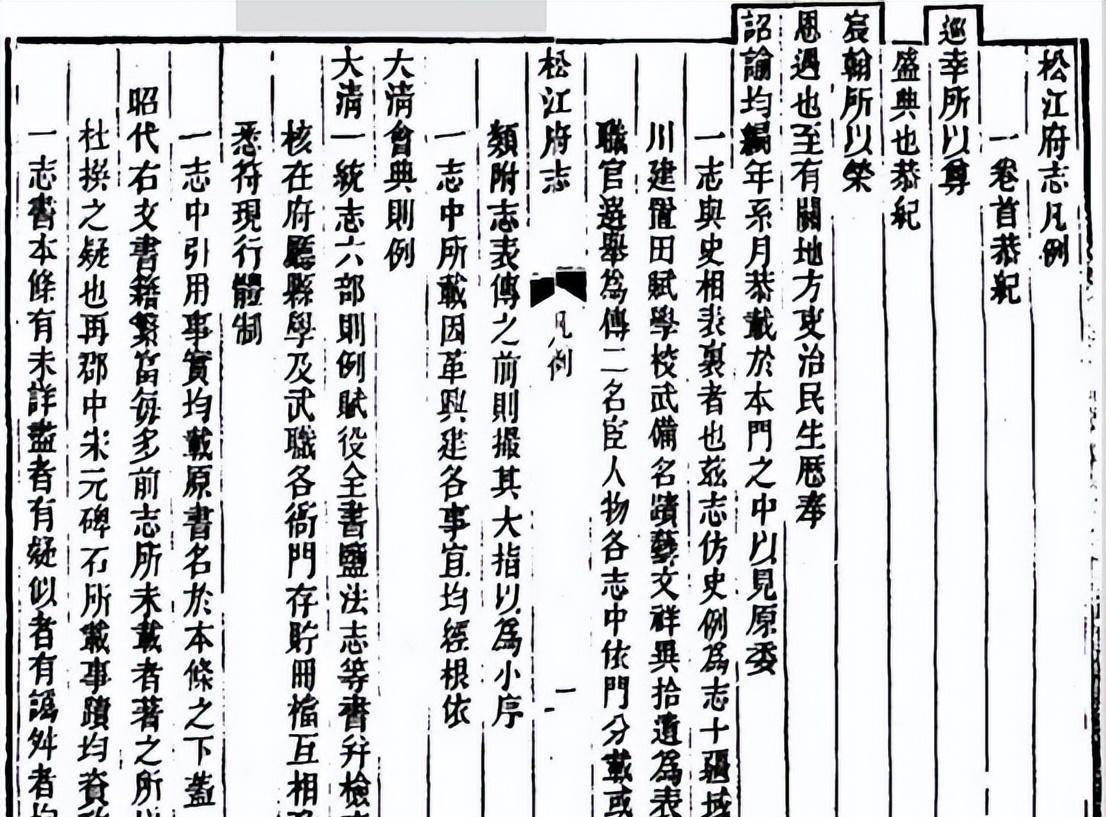 松江府志凡例
一卷首恭紀
巡幸所以尊
盛典也恭紀
宸翰所以榮
恩遇也至有關地方吏治民生歷奉
詔諭均編年系月恭載於本門之中以見原委
一志與史相表裏者也兹志仿史例爲志十疆域
川建置田賦學校武備名蹟藝文祥異拾遺爲表
職官選舉爲傳二名臣人物各志中依門分載或
類附志表傳之前則撮其大指以爲小序
松江府志
凡例
一
一志中所載因革興建各事宜均經根依
大淸會典則例
大淸一統志六部則例賦役全書鹽法志等書幷檢
核在府廳縣學及武職各衙門存貯冊檔互相
悉符現行體制
一志中引用事實均載原書名於本條之下蓋
昭代右文書籍繁富每多前志所未載者著之所以
杜撰之疑也再郡中宋元碑石所載事蹟均資
一志書本條有未詳盡者有疑似者有譌舛者均